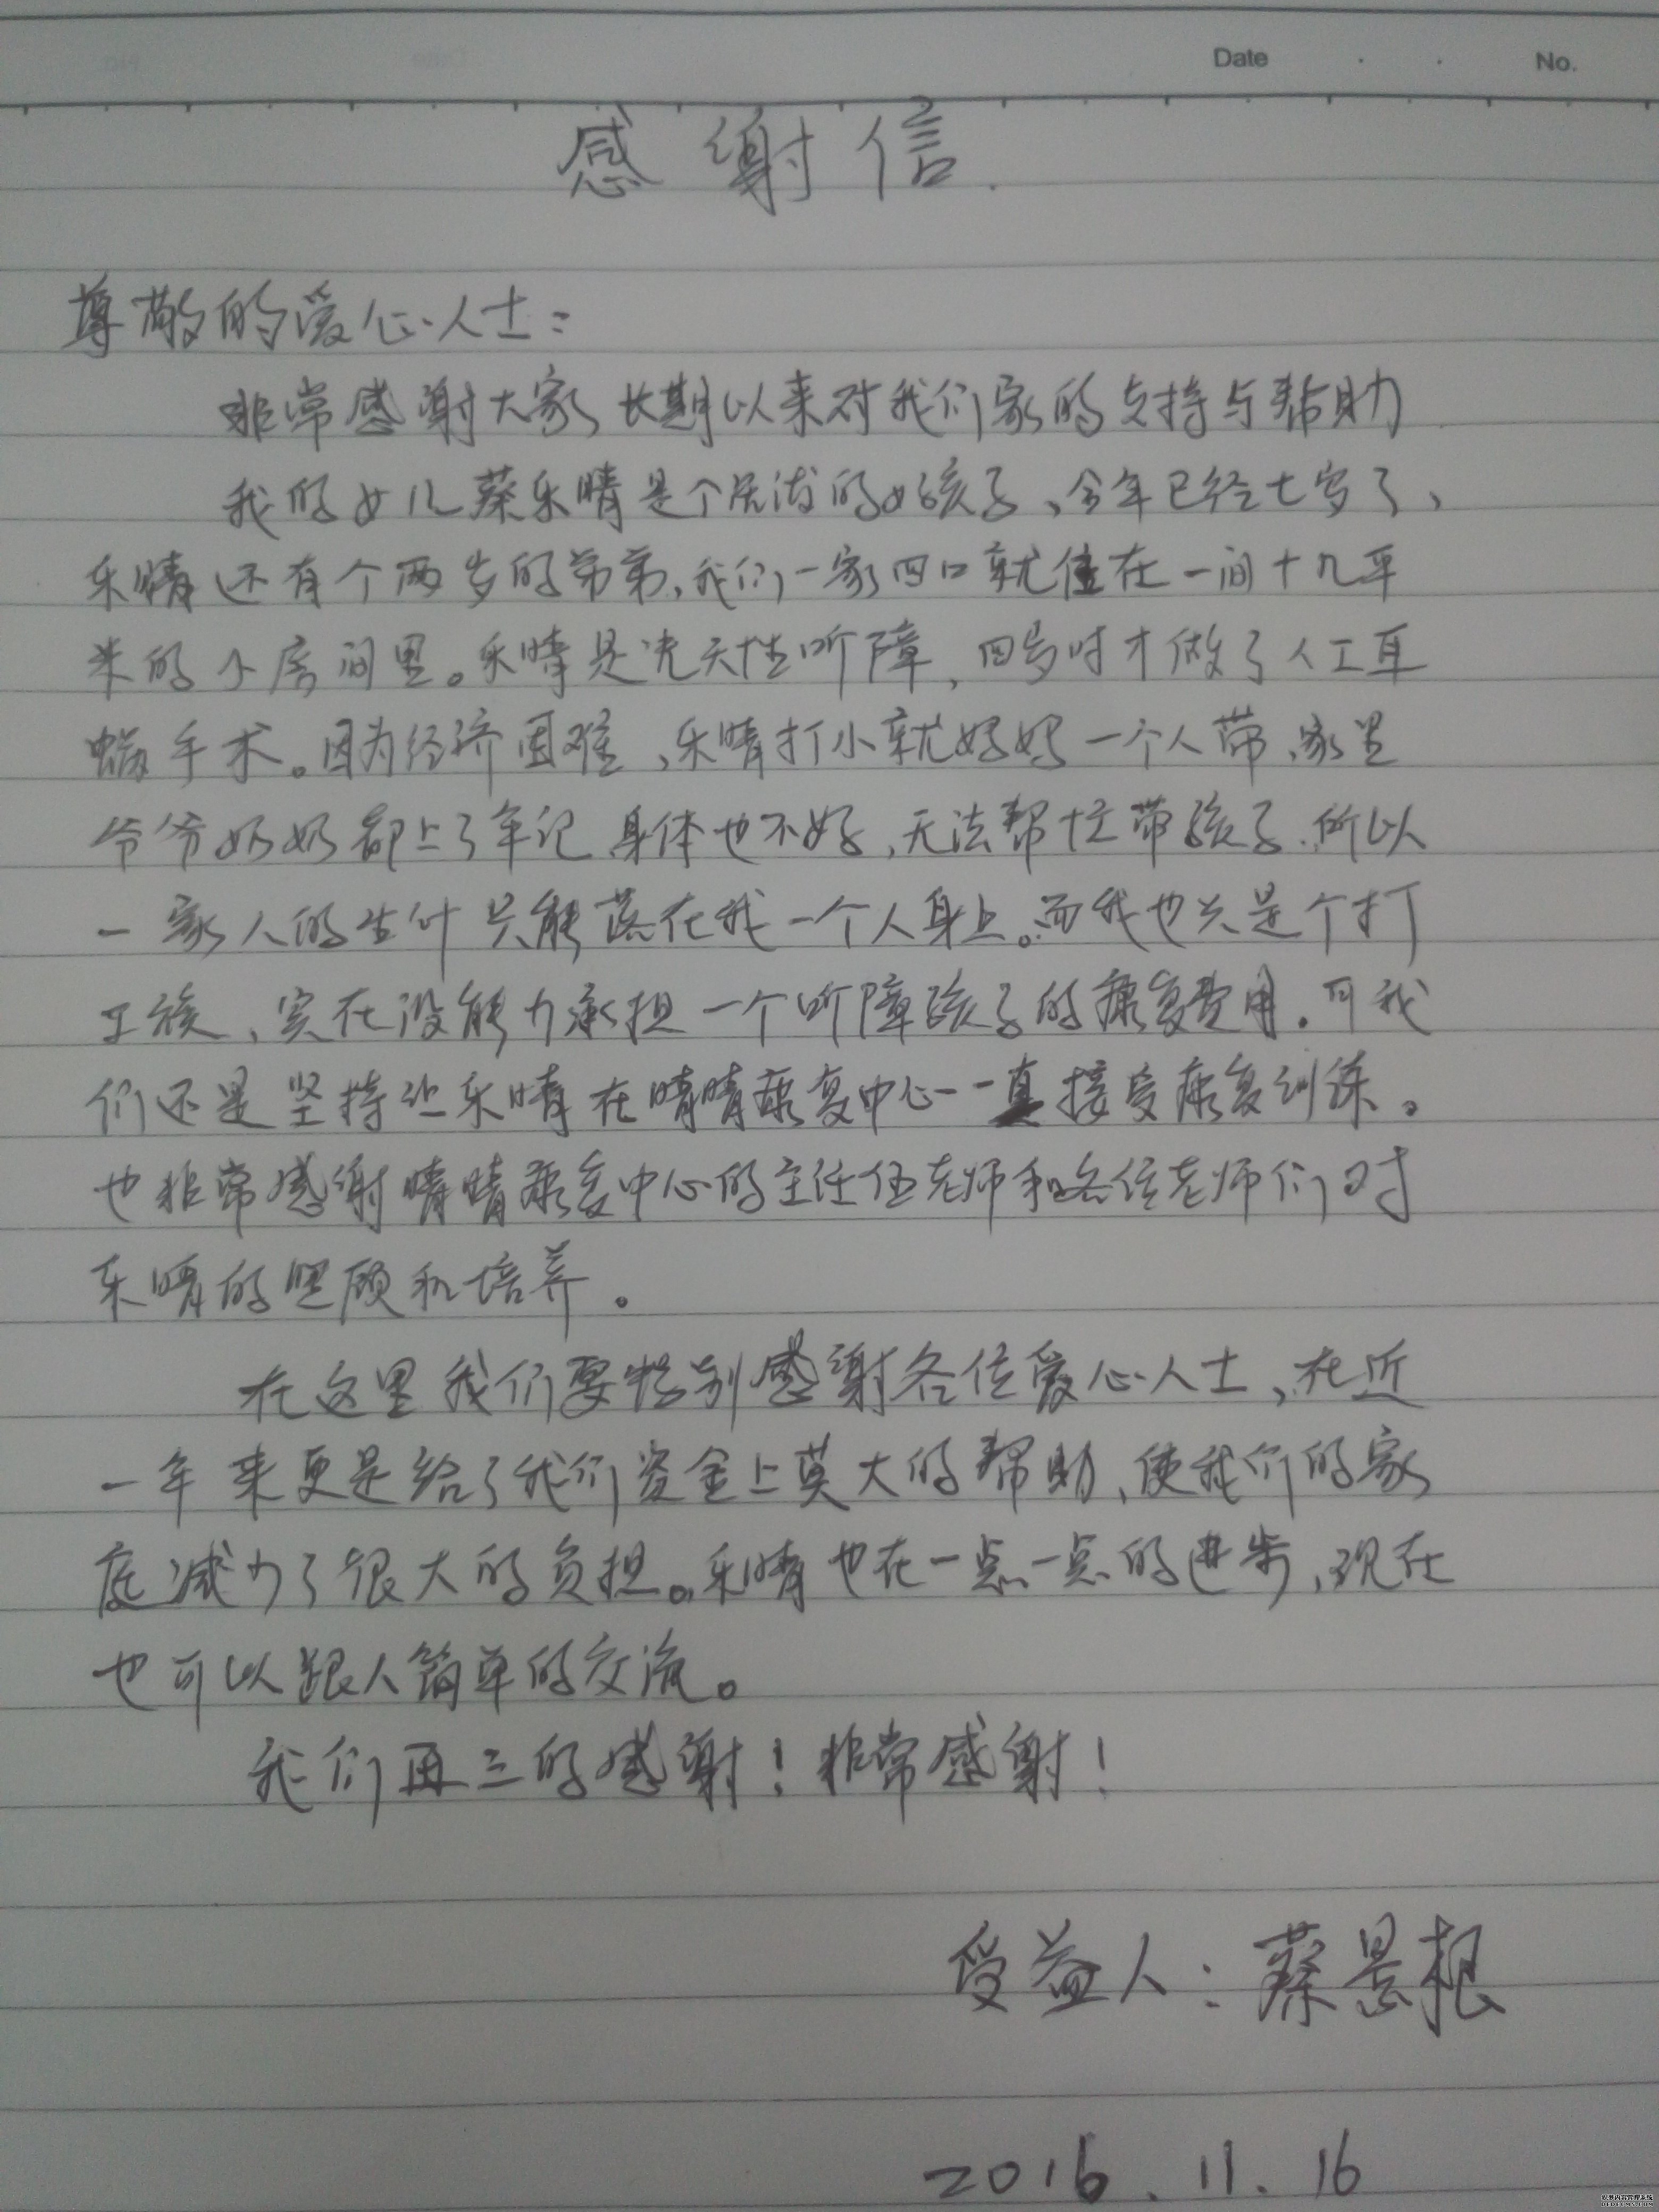 Date . . No.
感谢信.
尊敬的爱心人士:
非常感谢大家长期以来对我们家的支持与帮助
我的女儿蔡乐晴是个活泼的好孩子、今年已经七岁了、
乐晴还有个两岁的弟弟,我们一家四口就住在一间十几平
米的小房间里。乐晴是先天性听障,四岁时才做了人工耳
蜗手术。因为经济困难,乐晴打小就妈妈一个人带、家里
爷爷奶奶都上了年记身体也不好,无法帮忙带孩子.所以
一家人的生计只能落在我一个人身上。而我也只是个打
工族、实在没能力承担一个听障孩子的康复费用.可我
们还是坚持让乐晴在晴晴康复中心一直接受康复训练。
也非常感谢晴晴康复中心的主任伍老师和各位老师们对
乐晴的照顾和培养。
在这里我们要特别感谢各位爱心人士,在近
一年来更是给了我们资金上莫大的帮助、使我们的家
庭减力了很大的负担。乐晴也在一点一点的进步,现在
也可以跟人简单的交流。
我们再三的感谢!非常感谢!
受益人:蔡景根
2016.11.16